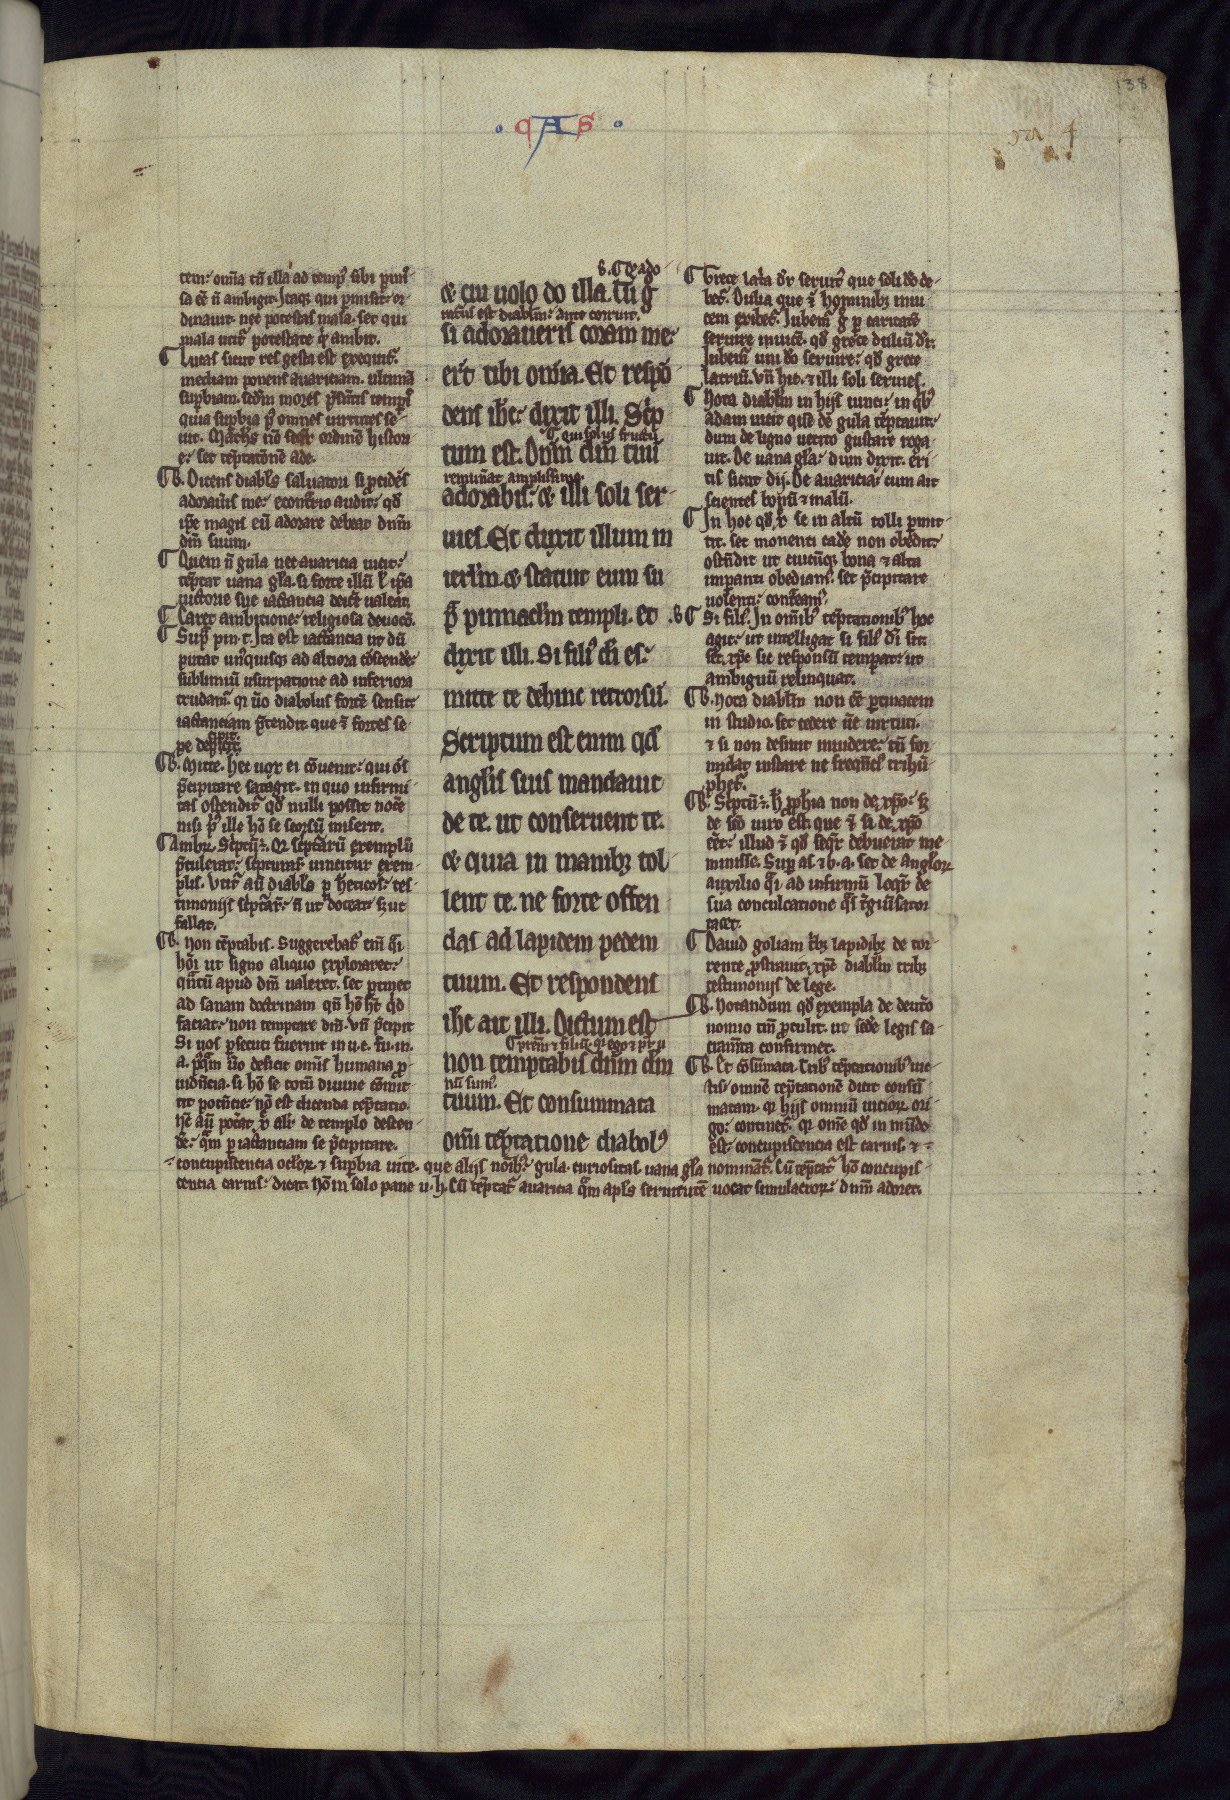 138
cAS
tem: omia tn illa ad temp sibi pmis
sa ee n ambigit. Itaq; qui pmisit: or
dinauit. nec potestas mala. set qui
mala utit potestate q ambit.
Lucas sicut res gesta est exequit.
mediam ponens auariciam. ultima
supbiam. sedm mores
quia supbia p omnes uirtutes se
uit. Math's no seqr ordine histori
e: set teptatone ade.
B. Dicens diabls saluatori si pcides
adoraueris me: econtrio audit: qd
ipe magis eu adorare debeat dnm
dm suum.
Quem n gula nec auaricia uicit:
teptat uana gla. si forte illu l ipa
uictorie sue iactancia deicere ualeat.
Caret ambitione: religiosa deuocio.
Sup pin t. Ita est iactancia ut du
putat unusquisq; ad altiora coscende:
sublimiu usurpatione ad inferiora
trudatur. q uo diabolus forte sensit:
iactanciam ptendit. que e fortes se
pe decipit.
B. Mitte. hec uox ei couenit: qui os
pcipitare satagit. in quo infirmi
tas ostendit qd nulli possit noce
nisi p ille ho se seorsu miserit.
Ambr. Scptu e. Q scptaru exemplu
ptulerat: scpturaru uincitur exem
plis. Utit au diabls p heticos: tes
timonijs scptar: n ut doceat: s; ut
fallat.
B. Non teptabis. Suggerebat eni qi
hoi ut signo aliquo exploraret:
qntu apud dm ualeret. set ptinet
ad sanam doctrinam qn ho ht qd
faciat: non temptare dm. Vn pcipit
Si uos psecuti fuerint in u. c. fu. in.
a. pqm uo deficit omis humana p
uidncia. si ho se totu diuine comit
tit potencie: no est dicenda teptatio.
hc au potat. alii de templo descen
de: qm p iactanciam se pcipitare.
s. Creado
& cui uolo do illa. tu g
si adoraueris coram me:
erit tibi omia. Et respo
dens ihc: dixit illi. Scp
qui solus fructu
tum est. Dnm dm tuu
remunat amplissimo.
adorabis: & illi soli ser
uies. Et duxit illum in
ierlm. & statuit eum su
p pinnaclm templi. et
dixit illi. Si fili di es:
mitte te dehinc retrorsu.
Scriptum est enim qd
anglis suis mandauit
de te. ut conseruent te.
& quia in manib; tol
lent te. ne forte offen
das ad lapidem pedem
tuum. Et respondens
ihc ait illi. Dictum est
non temptabis dnm dm
tuum. Et consummata
omi teptatione diabol'
Grece latria dr seruit que soli do de
bet. Dulia que e hominib; inui
cem exibet. Jubemur g p caritate
seruire inuice. qd grece duliu dr:
Jubemur uni do seruire: qd grece
latriu. vn hic. & illi soli seruies.
Nota diablm in hijs uinci: in qb'
adam uicit que de gula teptauit:
dum de ligno uetito gustare roga
uit. De uana gla: dum dixit. eri
tis sicut dij. De auaricia: cum ait
scientes bonu & malu.
In hoc qd p se in altu tolli pmit
tit. set monenti cade non obedit:
ostendit ut cuicuq; bona & alta
impanti obediamus. set pcipitare
uolenti: conteamus.
.B. Si fils. In omib' teptationib' hoc
agit: ut intelligat si fils di sit:
set. xpc sic responsu temperat: ut
ambiguu relinquat.
B. Nota diablm non ee ptinacem
in studio. set cedere ue uirtuti.
& si non desinit inuidere: tn for
midat instare ne frequencius triu
phetur.
B. Scptu e. H pphia non de xpo: s;
de sco uiro est. que & si de xpo
eet: illud & qd seqr debuerat me
minisse. Sup as. & b. a. set de anglor
auxilio qi ad infirmu loqr de
sua conculcatione qi tgiusator
tacet.
Dauid goliam trib; lapidib; de tor
rente pstrauit: xpc diablm trib;
testimonijs de lege.
B. Notandum qd exempla de deuto
nomio tm ptulit. ut sede legis sa
cramta confirmet.
B. Et cosumata. Trib' teptationib' uic
tis: omne teptatione dicit consu
matam. q hijs omniu uicior ori
go: continet. q ome qd in mudo
est: concupiscencia est carnis. &
concupiscencia oclor. & supbia uite. que alijs noib: gula. curiositas. uana gla nominat. Cu teptat ho concupis
cencia carnis: dicat: ho in solo pane u. h. Cu teptat auaricia qm apls seruitute uocat simulacror: dnm adoret.